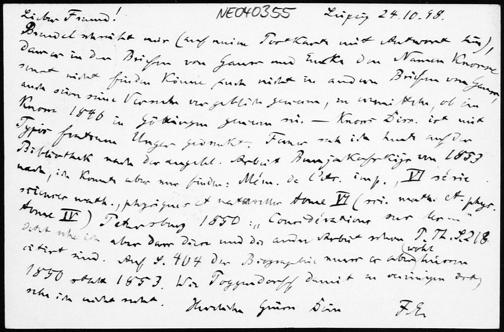 NE040355
Lieber Freund! Leipzig 24.10.98.
Brendel schreibt mir (auf meine Postkarte mit Antwort hin),
dass er in den Briefen von Gauss und Encke den Namen Knorre
sonst nicht finden könne, auch nicht in andern Briefen von Gauss
auch seien seine Versuche vergeblich gewesen, zu ermitteln, ob ein
Knorr 1846 in Göttingen gewesen sei. — Knorrs Diss. ist mit
Typis fratrum Unger gedruckt. Ferner sah ich heute auf der
Bibliothek nach der angebl. Arbeit Bunjakofskijs von 1853
nach, ich konnte aber nur finden: Mém. de l'Ac. imp., VI série
sciences math., physiques et naturelles tome VI (sci. math. et phys.
tome IV) Petersburg 1850 „Considérations sur
Jetzt sehe ich aber dass diese und die andre Arbeit schon P. Th. S. 218
citirt sind. Auf S. 404 der Biographie muss es also wohl heissen
1850 statt 1853. Wie Poggendorff damit zu einigen ist,
sehe ich nicht recht. Herzliche Grüsse Dein F. E.